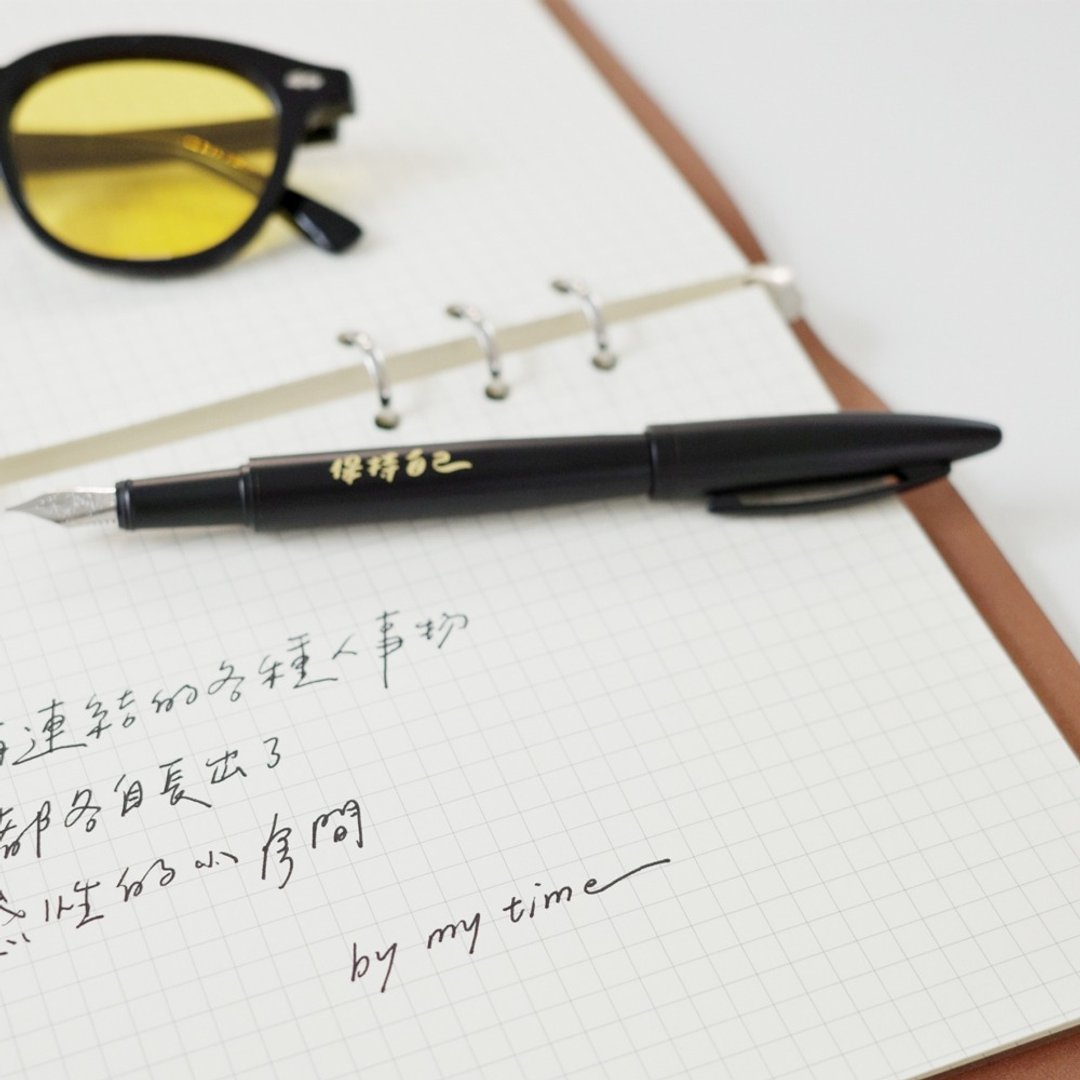 保持自己
連結的各種人事物
都各自長出了
感性的小房間
by my time